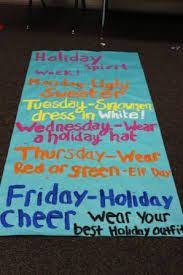 Holiday
Spirit
Week!
Monday Ugly
Sweater
Tuesday-Snowmen
dress in White!
Wednesday-Wear
a holiday hat
Thursday-Wear
Red or green-Elf Day
Friday-Holiday
cheer Wear your
best Holiday outfit